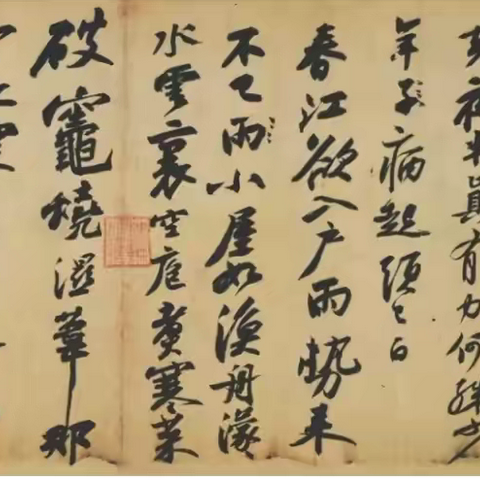 去夜半真有力何殊少
年子病起須已白
春江欲入戶雨勢來
不已雨小屋如漁舟濛
水雲裏空庖煮寒菜
破竈燒濕葦那